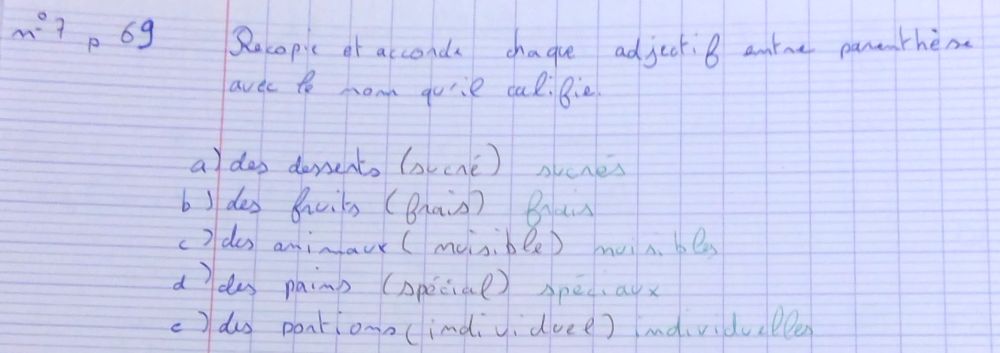 n°7 p 69 Recopie et accorde chaque adjectif entre parenthèse
avec le nom qu'il califie.
a) des desserts (sucré) sucrés
b) des fruits (frais) frais
c) des animaux (nuisible) nuisibles
d) des pains (spécial) spéciaux
e) des portions (individuel) individuelles